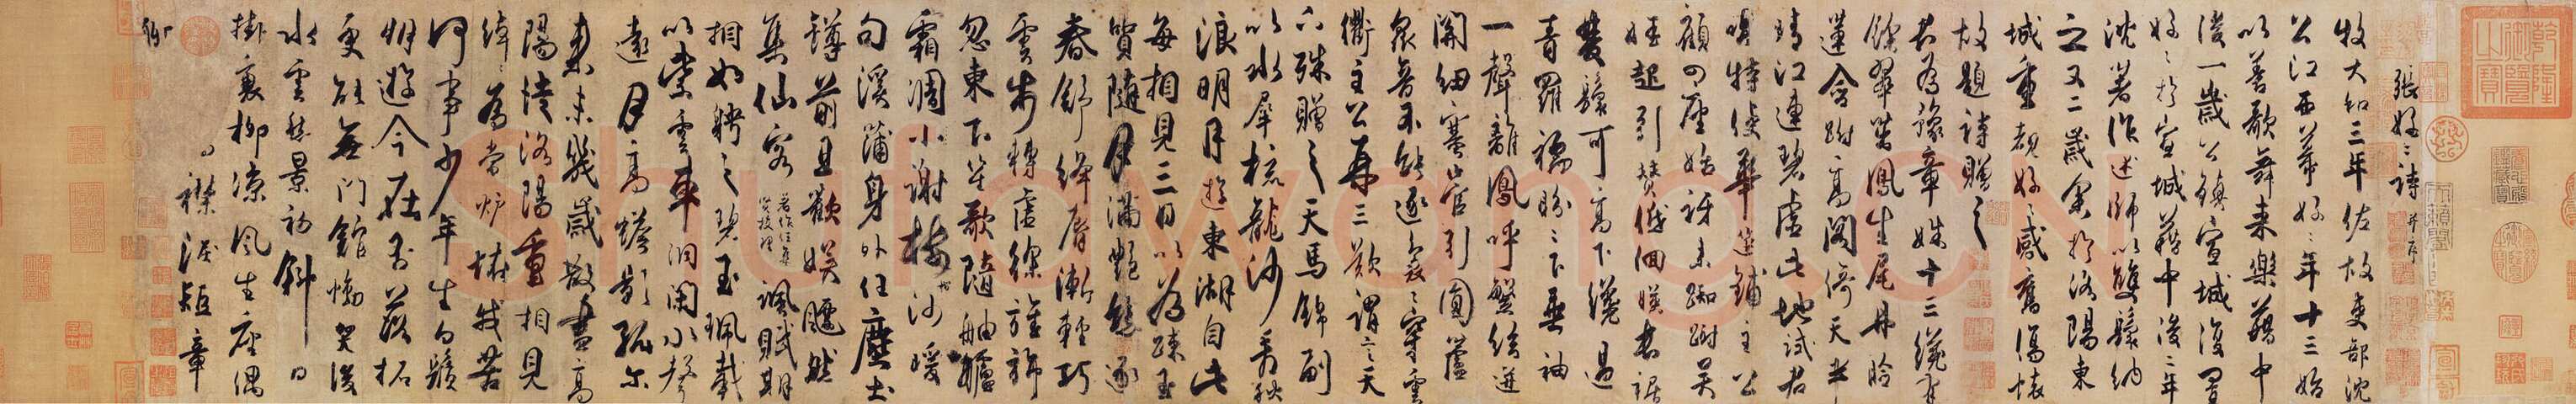 乾隆御覽之寶
張好好詩并序
牧大和三年佐故吏部沈
公江西幕好好年十三始
以善歌舞來樂籍中
後一歲公鎮宣城復置
好好於宣城籍中後二年
沈著作述師以雙鬟納
之又二歲余於洛陽東
城重覩好好感舊傷懷
故題詩贈之
君為豫章姝十三纔有
餘翠茁鳳生尾丹臉
蓮含跗高閣倚天半
晴江連碧虛此地試君
唱特使華筵鋪主公
顧四座始訝來踟躕吳
娃起引贊低佪映長裾
雙鬟可高下纔過
青羅襦盼盼下垂袖
一聲離鳳呼繁絃迸
關紐塞管引圓蘆
眾音不能逐裊裊穿雲
衢主公再三歎謂言天
下殊贈之天馬錦副
以水犀梳龍沙看秋
浪明月遊東湖自此
每相見三日以為疎玉
質隨月滿豔態逐
春舒絳脣漸輕巧
雲步轉虛徐旌旆
忽東下笙歌隨舳艫
霜凋小謝樓沙暖
句溪蒲身外任塵土
罇前且歡娛飄然
集仙客著作任集賢校理諷賦期
相如聘之碧玉珮載
以紫雲車洞閉水聲
遠月高蟾影孤尔
來未幾歲散盡高
陽徒洛陽重相見
綽綽為當爐怪我苦
何事少年生白鬚
朋遊今在否落拓
更能無門館慟哭後
水雲愁景初斜日
掛衰柳涼風生座隅
襟淚短章
聊